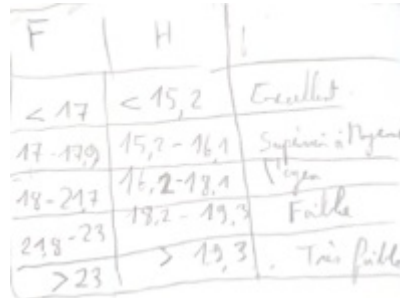 F H
< 17 < 15,2 Excellent
17-17,9 15,2-16,1 Supérieur à Moyenne
18-21,7 16,2-18,1 Moyen
21,8-23 18,2-19,3 Faible
> 23 > 19,3 Très faible